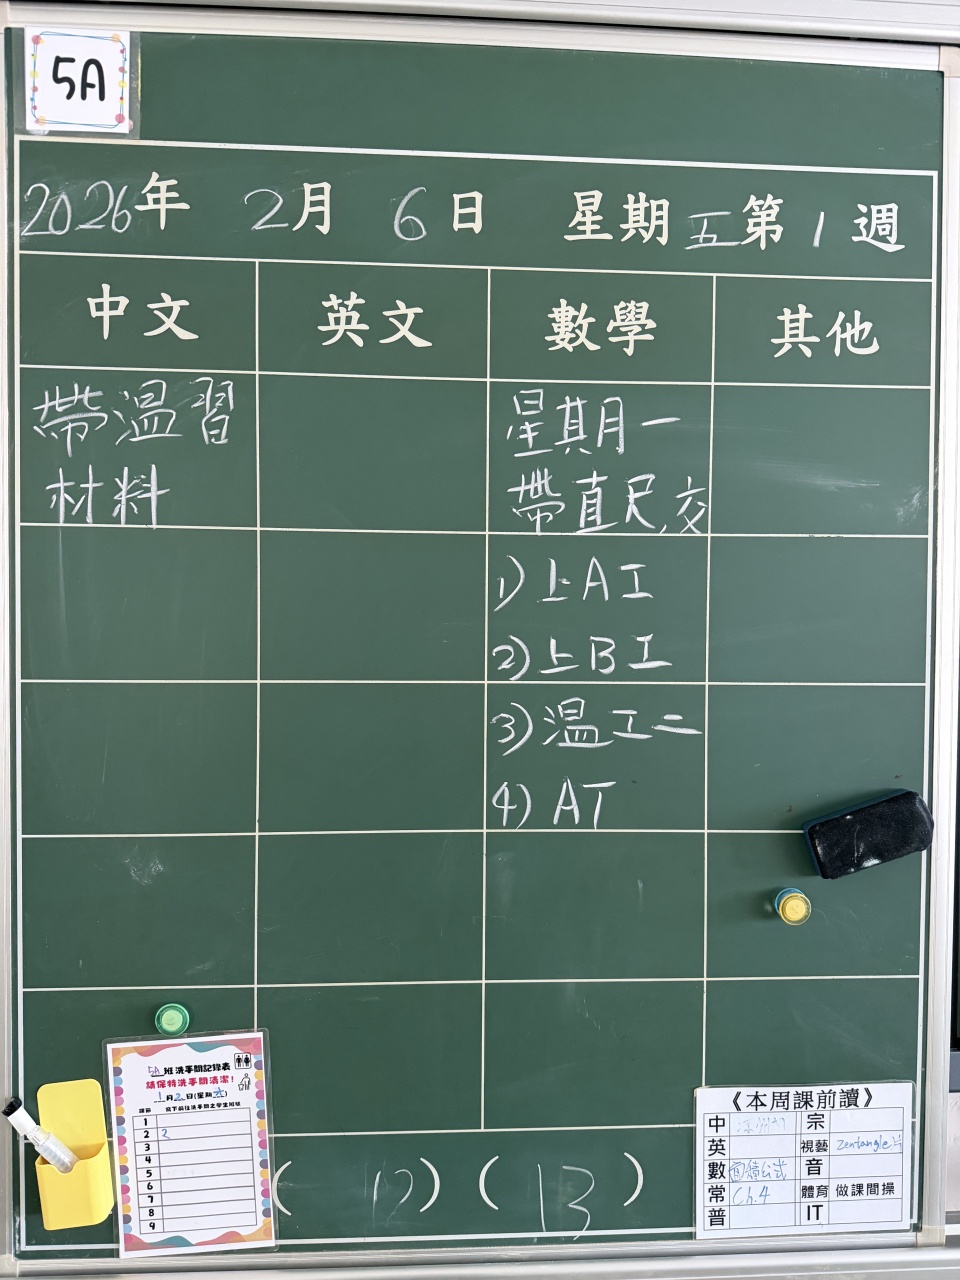 5A
2026年 2月 6日 星期五 第1週
中文 英文 數學 其他
帶溫習
材料
星期一
帶直尺,交
1)上A工
2)上B工
3)溫工二
4)AT
5A班洗手間記錄表
請保持洗手間清潔!
課節 寫下前往洗手間之學生班號
1
2 2
3
4
5
6
7
8
9
( 12 ) ( 13 )
《本周課前讀》
中 宗
英 視藝 Zentangle
數 面積公式 音
常 Ch.4 體育 做課間操
普 IT